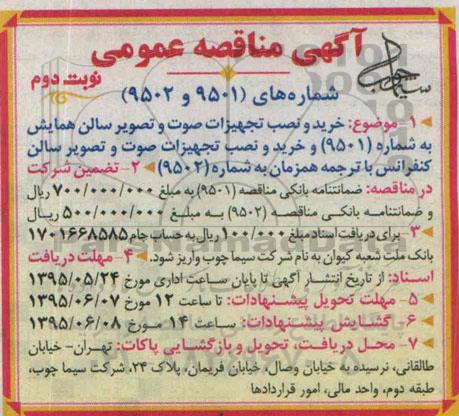 آگهی مناقصه عمومی
سیماچوب
نوبت دوم
شماره‌های (۹۵۰۱ و ۹۵۰۲)
۱- موضوع: خرید و نصب تجهیزات صوت و تصویر سالن همایش
به شماره (۹۵۰۱) و خرید و نصب تجهیزات صوت و تصویر سالن
کنفرانس با ترجمه همزمان به شماره (۹۵۰۲) ۲- تضمین شرکت
در مناقصه: ضمانتنامه بانکی مناقصه (۹۵۰۱) به مبلغ ۷۰۰/۰۰۰/۰۰۰ ریال
و ضمانتنامه بانکی مناقصه (۹۵۰۲) به مبلغ ۵۰۰/۰۰۰/۰۰۰ ریال
۳- برای دریافت اسناد مبلغ ۱۰۰/۰۰۰ ریال به حساب جام ۱۷۰۱۶۶۸۵۸۵
بانک ملت شعبه کیوان به نام شرکت سیما چوب واریز شود. ۴- مهلت دریافت
اسناد: از تاریخ انتشار آگهی تا پایان ساعت اداری مورخ ۱۳۹۵/۰۵/۲۴
۵- مهلت تحویل پیشنهادات: تا ساعت ۱۲ مورخ ۱۳۹۵/۰۶/۰۷
۶- گشایش پیشنهادات: ساعت ۱۴ مورخ ۱۳۹۵/۰۶/۰۸
۷- محل دریافت، تحویل و بازگشایی پاکات: تهران- خیابان
طالقانی، نرسیده به خیابان وصال، خیابان فریمان، پلاک ۲۴، شرکت سیما چوب،
طبقه دوم، واحد مالی، امور قراردادها